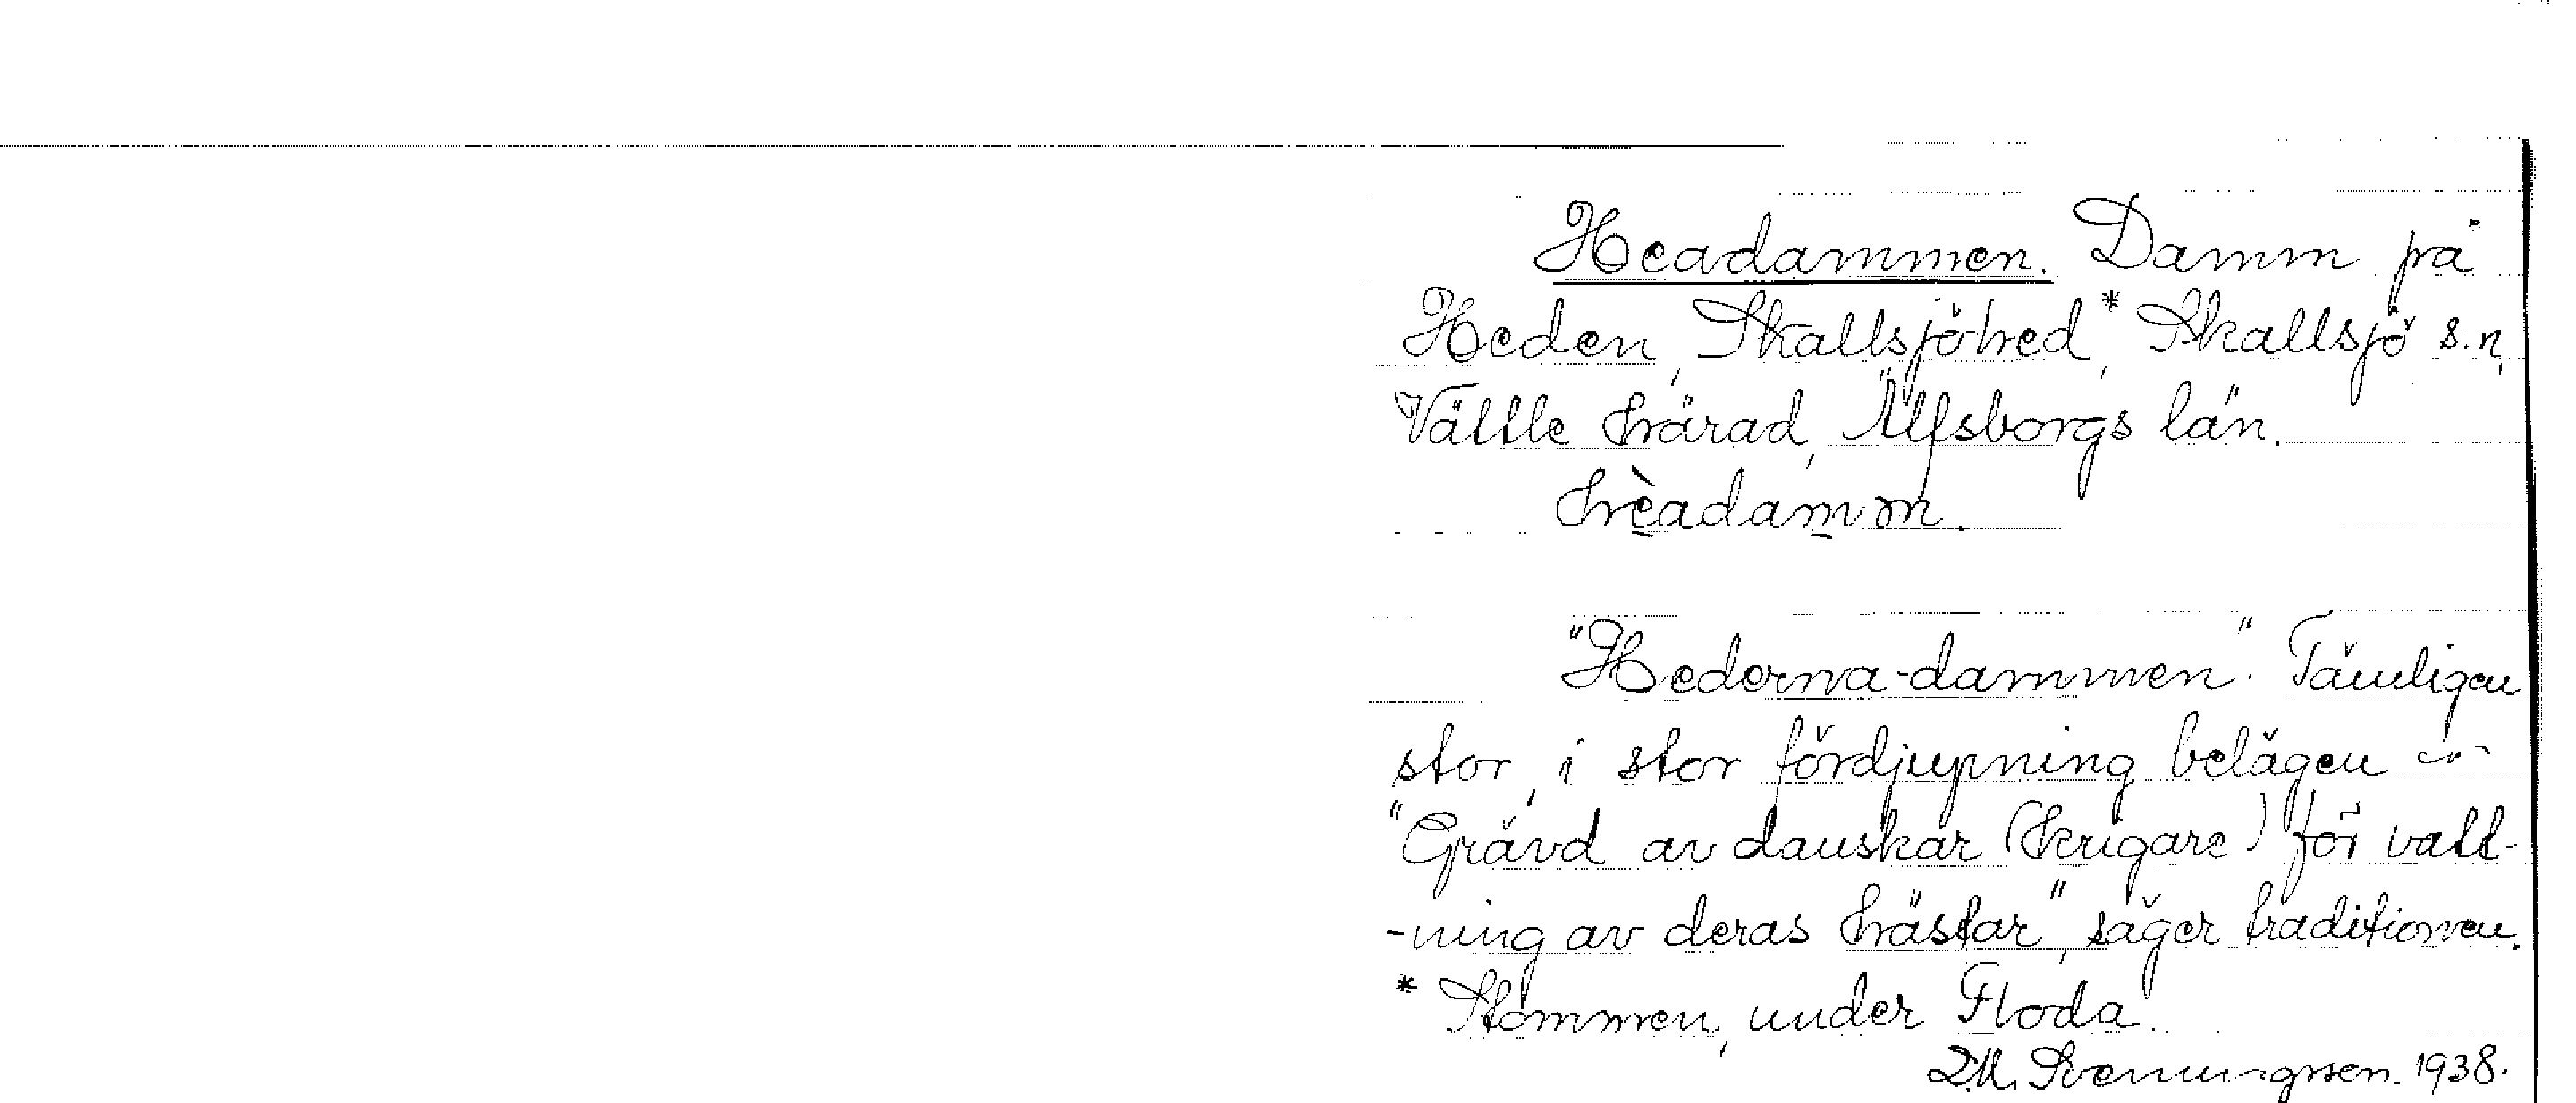 Headammen. Damm på
Heden, Skallsjöhed,* Skallsjö s:n,
Vättle härad, Älfsborgs län.
hèadamm.
"Hederna-dammen". Tämligen
stor, i stor fördjupning belägen
"Grävd av danskar (krigare) för vatt-
-ning av deras hästar", säger traditionen.
* Stommen, under Floda.
D.M. Svenningsson. 1938.